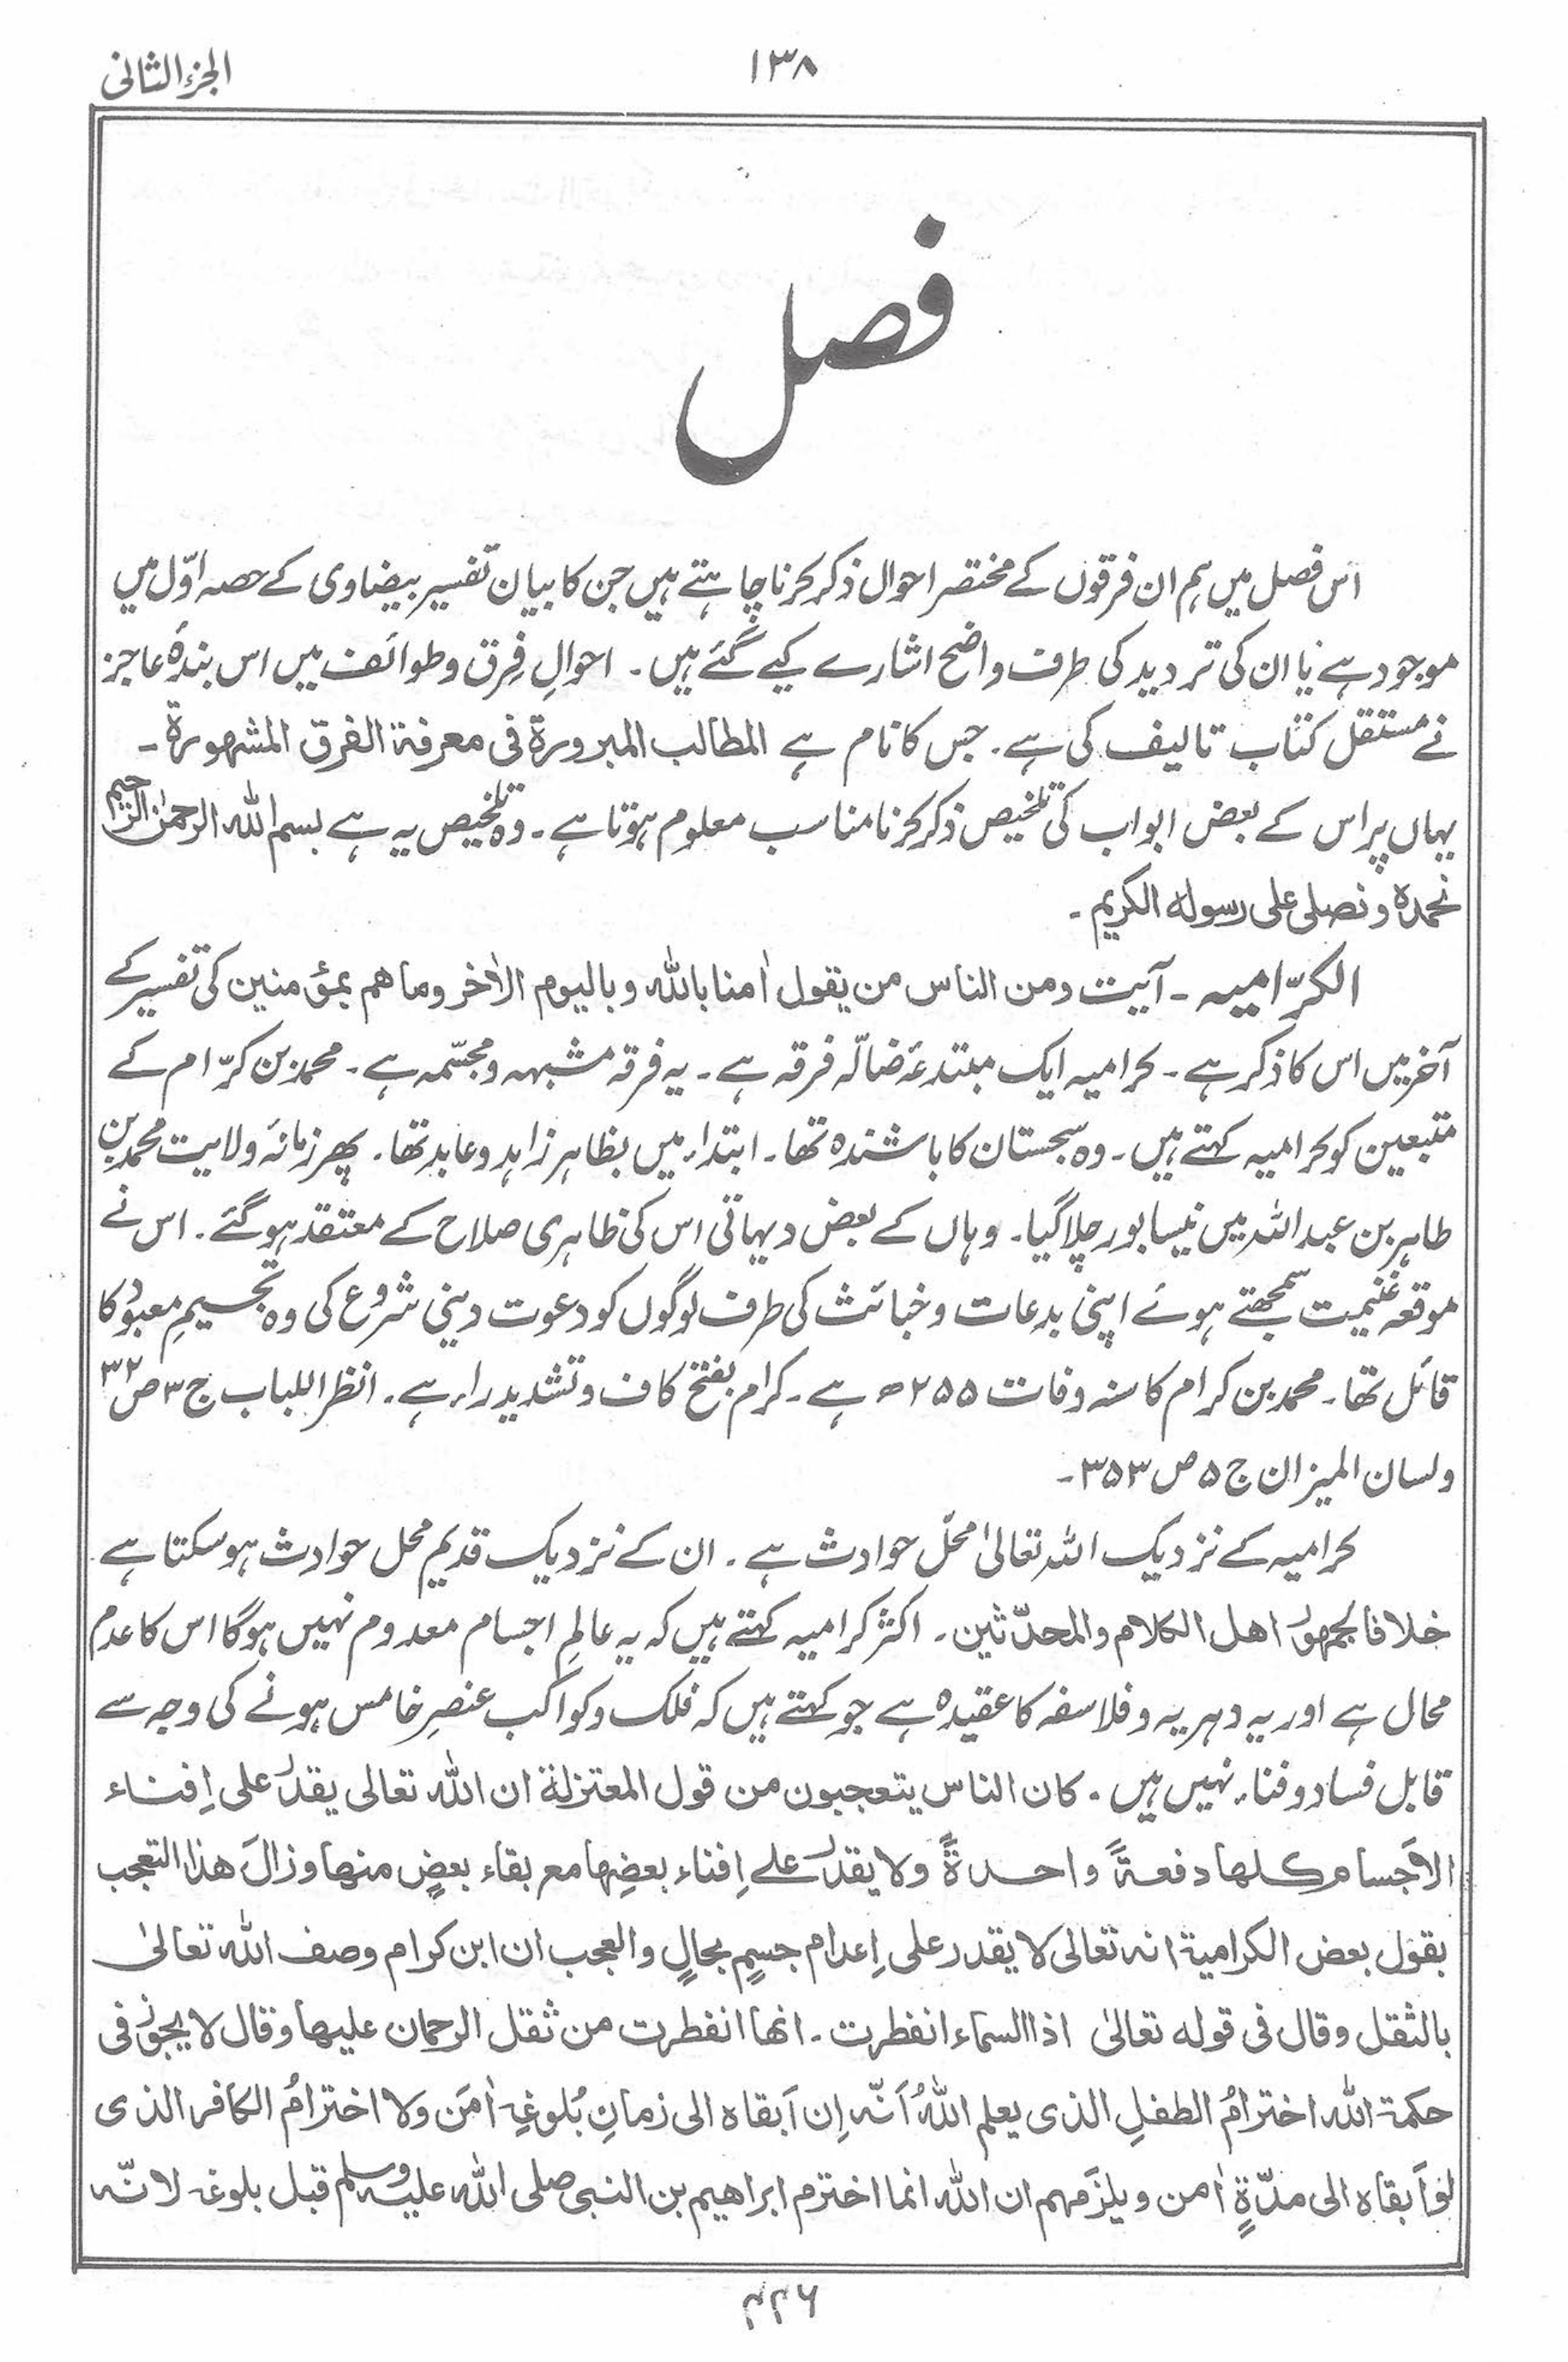 ۱۳۸
الجزء الثانی
فصل
اس فصل میں ہم ان فرقوں کے مختصر احوال ذکر کرنا چاہتے ہیں جن کا بیان تفسیر بیضاوی کے حصہ اوّل میں
موجود ہے یا ان کی تردید کی طرف واضح اشارے کیے گئے ہیں ۔ احوالِ فِرق و طوائف میں اس بندۂ عاجز
نے مستقل کتاب تالیف کی ہے ۔ جس کا نام ہے المطالب المبرورۃ فی معرفۃ الفرق المشہورۃ ۔
یہاں پر اس کے بعض ابواب کی تلخیص ذکر کرنا مناسب معلوم ہوتا ہے ۔ وہ تلخیص یہ ہے بسم اللہ الرحمٰن الرحیم
نحمدہ و نصلی علی رسولہ الکریم ۔
الکرّامیہ ۔ آیت ومن الناس من یقول اٰمنا باللہ وبالیوم الاٰخر وماھم بمؤمنین کی تفسیر کے
آخر میں اس کا ذکر ہے ۔ کرامیہ ایک مبتدعۂ ضالّہ فرقہ ہے ۔ یہ فرقہ مشبہہ و مجسّمہ ہے ۔ محمد بن کرّام کے
متبعین کو کرامیہ کہتے ہیں ۔ وہ سجستان کا باشندہ تھا ۔ ابتداء میں بظاہر زاہد و عابد تھا ۔ پھر زمانۂ ولایت محمد بن
طاہر بن عبداللہ میں نیسابور چلا گیا ۔ وہاں کے بعض دیہاتی اس کی ظاہری صلاح کے معتقد ہو گئے ۔ اس نے
موقعہ غنیمت سمجھتے ہوئے اپنی بدعات و خبائث کی طرف لوگوں کو دعوت دینی شروع کی وہ تجسیمِ معبود کا
قائل تھا ۔ محمد بن کرام کا سنہ وفات ۲۵۵ھ ہے ۔ کرام بفتح کاف و تشدید راء ہے ۔ انظر اللباب ج ۳ ص ۳۲
ولسان المیزان ج ۵ ص ۳۵۳ ۔
کرامیہ کے نزدیک اللہ تعالیٰ محلّ حوادث ہے ۔ ان کے نزدیک قدیم محل حوادث ہو سکتا ہے
خلافا لجمھور اھل الکلام والمحدّثین ۔ اکثر کرامیہ کہتے ہیں کہ یہ عالمِ اجسام معدوم نہیں ہوگا اس کا عدم
محال ہے اور یہ دہریہ و فلاسفہ کا عقیدہ ہے جو کہتے ہیں کہ فلک و کواکب عنصرِ خامس ہونے کی وجہ سے
قابل فساد و فناء نہیں ہیں ۔ کان الناس یتعجبون من قول المعتزلۃ ان اللہ تعالی یقدر علی اِفناء
الاَجسام کلھا دفعۃً واحدۃً ولا یقدر علے اِفناء بعضِھا مع بقاء بعضٍ منھا وزالَ ھذا التعجب
بقول بعض الکرامیۃ انہ تعالی لا یقدر علی اِعدام جسمٍ بحالٍ والعجب ان ابن کرام وصف اللہ تعالیٰ
بالثقل وقال فی قولہ تعالیٰ اذا السماء انفطرت ۔ انھا انفطرت من ثقل الرحمان علیھا وقال لا یجوز فی
حکمۃ اللہ اخترامُ الطفلِ الذی یعلم اللہُ اَنّہ اِن اَبقاہ الی زمانِ بُلوغِہ اٰمَن وَلا اخترامُ الکافر الذی
لو اَبقاہ الی مدّۃٍ اٰمن ویلزَمھم ان اللہ انما اخترم ابراھیم بن النبی صلی اللہ علیہ وسلم قبل بلوغہ لانّہ
۴۴۶